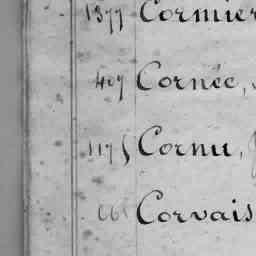 1377 Cormier
407 Cornée,
1175 Cornu,
Corvais